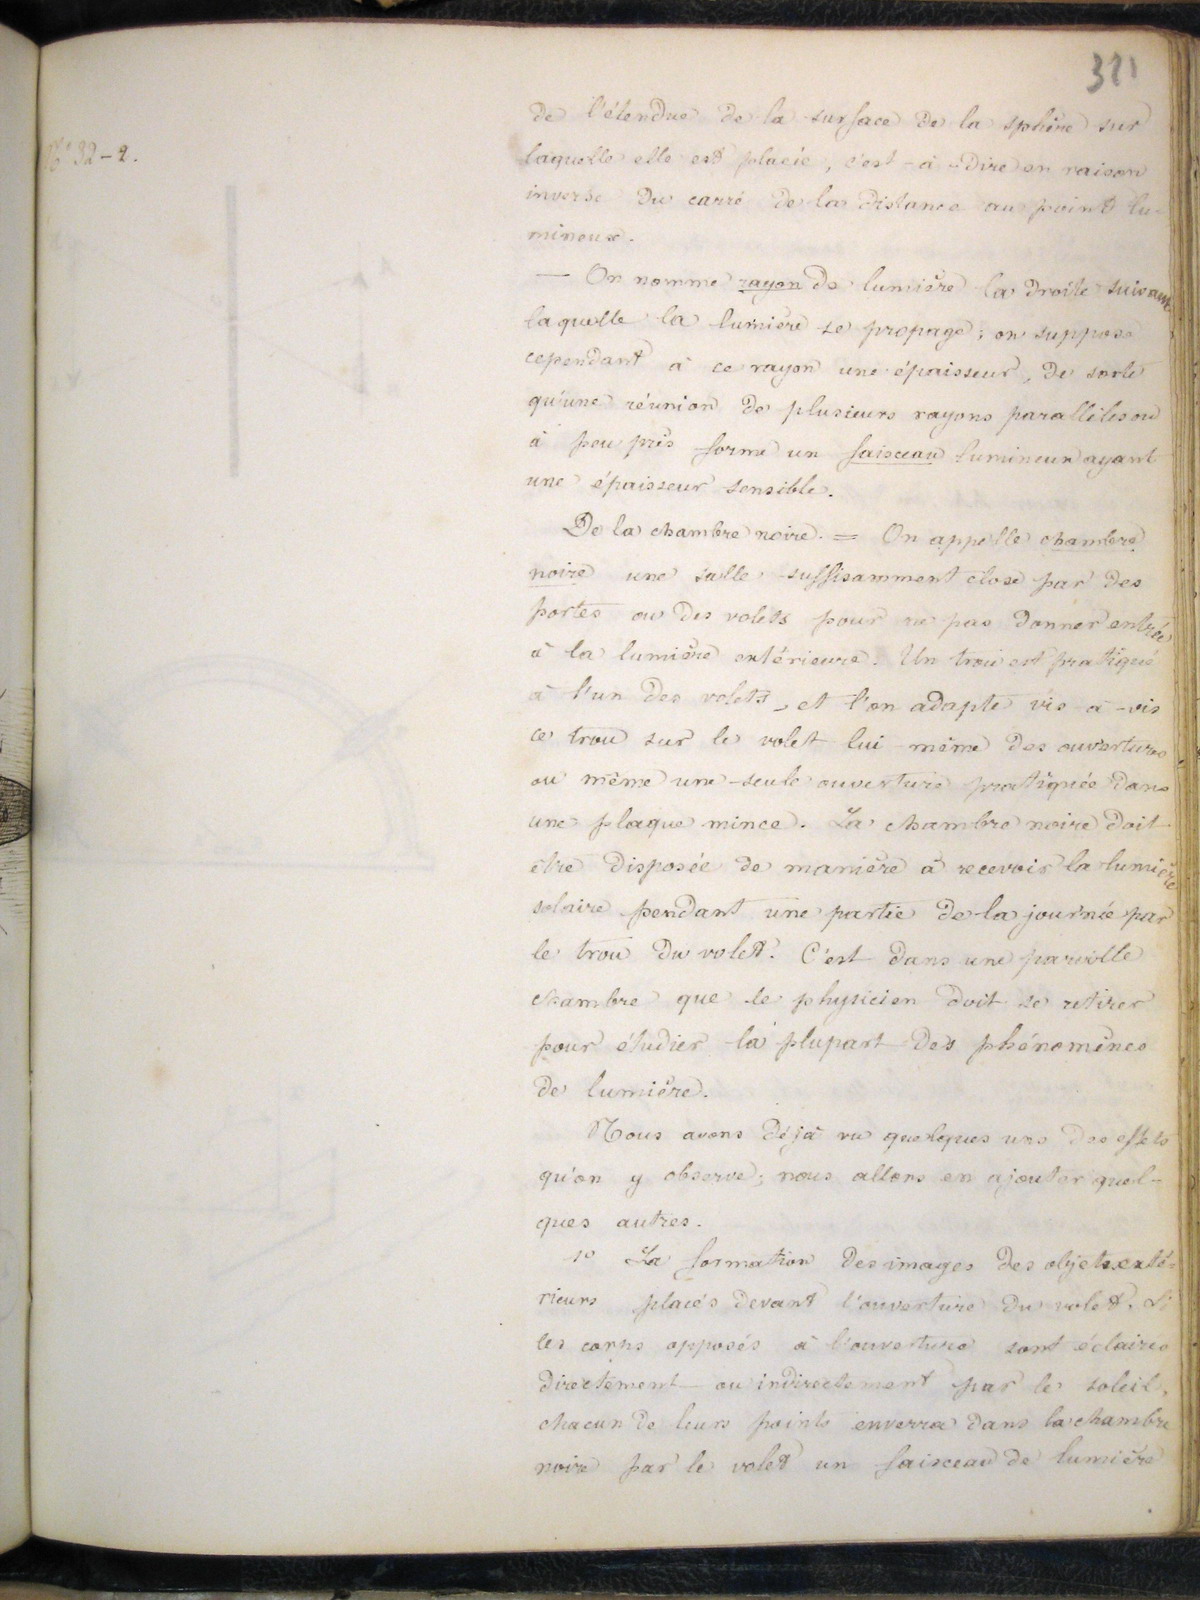 321
N° 32-2.
de l'étendue de la surface de la sphère sur
laquelle elle est placée, c'est-à-dire en raison
inverse du carré de la distance au point lu-
mineux.
— On nomme rayon de lumière la droite suivant
laquelle la lumière se propage; on suppose
cependant à ce rayon une épaisseur, de sorte
qu'une réunion de plusieurs rayons parallèles ou
à peu près forme un faisceau lumineux ayant
une épaisseur sensible.
De la chambre noire. = On appelle chambre
noire une salle suffisamment close par des
portes ou des volets pour ne pas donner entrée
à la lumière extérieure. Un trou est pratiqué
à l'un des volets, et l'on adapte vis-à-vis
ce trou sur le volet lui-même des ouvertures
ou même une seule ouverture pratiquée dans
une plaque mince. La chambre noire doit
être disposée de manière à recevoir la lumière
solaire pendant une partie de la journée par
le trou du volet. C'est dans une pareille
chambre que le physicien doit se retirer
pour étudier la plupart des phénomènes
de lumière.
Nous avons déjà vu quelques uns des effets
qu'on y observe; nous allons en ajouter quel-
ques autres.
1° La formation des images des objets exté-
rieurs placés devant l'ouverture du volet. Si
les corps opposés à l'ouverture sont éclairés
directement ou indirectement par le soleil,
chacun de leurs points enverra dans la chambre
noire par le volet un faisceau de lumière